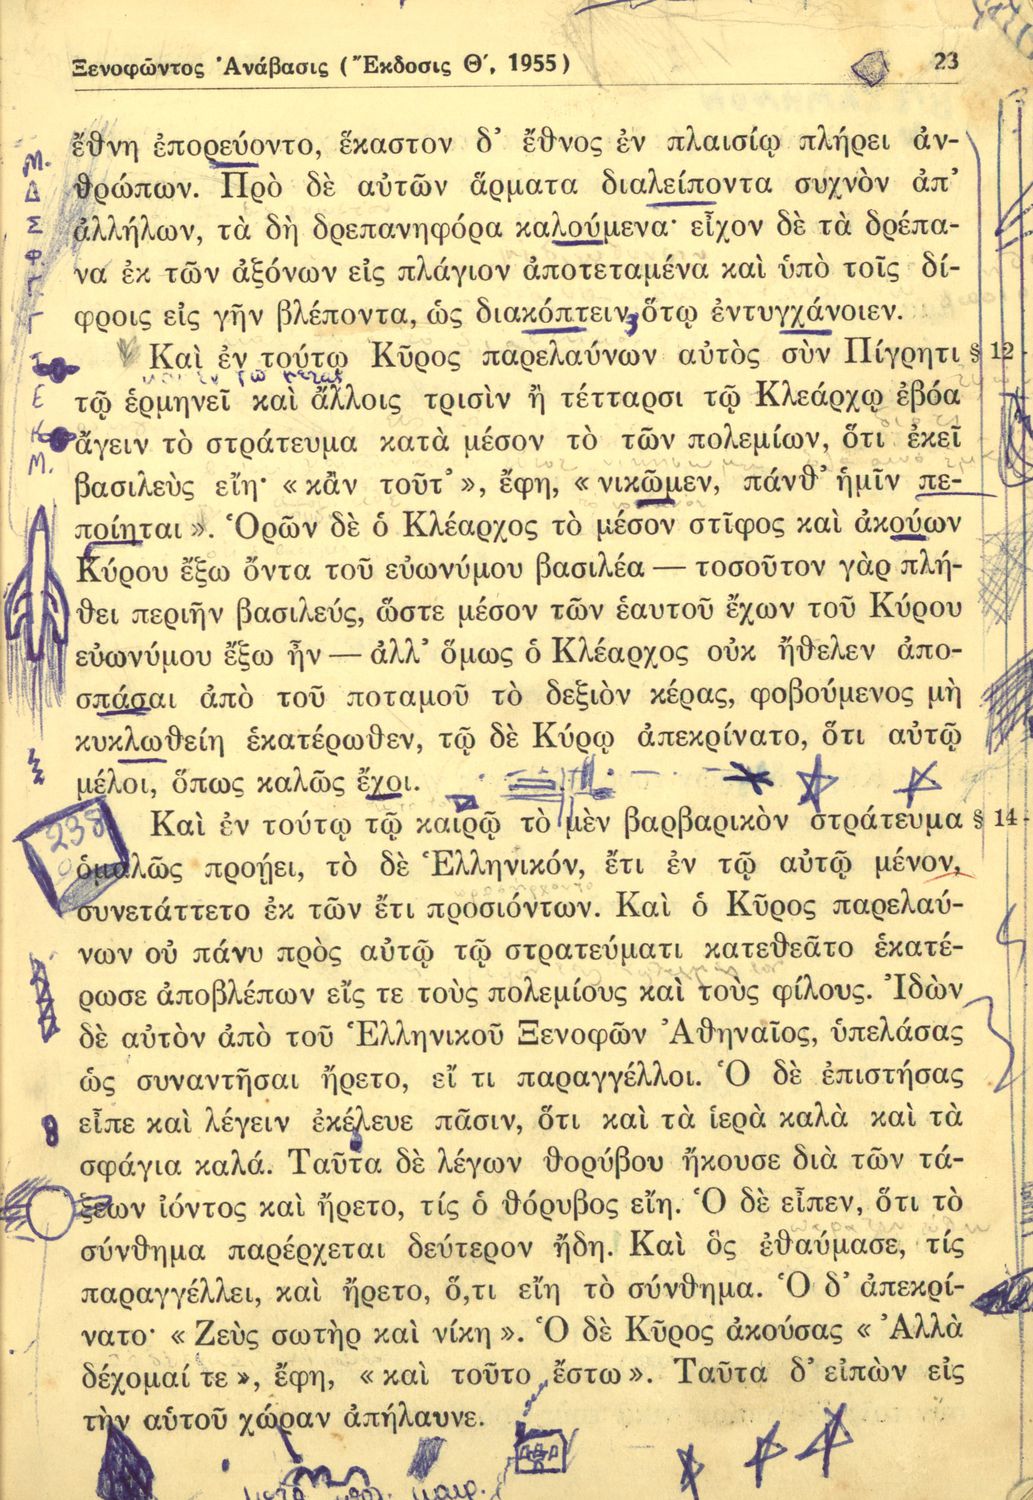 Ξενοφῶντος Ἀνάβασις (Ἔκδοσις Θ΄, 1955) 23
ἔθνη ἐπορεύοντο, ἕκαστον δ’ ἔθνος ἐν πλαισίῳ πλήρει ἀν-
θρώπων. Πρὸ δὲ αὐτῶν ἅρματα διαλείποντα συχνὸν ἀπ’
ἀλλήλων, τὰ δὴ δρεπανηφόρα καλούμενα· εἶχον δὲ τὰ δρέπα-
να ἐκ τῶν ἀξόνων εἰς πλάγιον ἀποτεταμένα καὶ ὑπὸ τοῖς δί-
φροις εἰς γῆν βλέποντα, ὡς διακόπτειν, ὅτῳ ἐντυγχάνοιεν.
Καὶ ἐν τούτῳ Κῦρος παρελαύνων αὐτὸς σὺν Πίγρητι § 12
τῷ ἑρμηνεῖ καὶ ἄλλοις τρισὶν ἢ τέτταρσι τῷ Κλεάρχῳ ἐβόα
ἄγειν τὸ στράτευμα κατὰ μέσον τὸ τῶν πολεμίων, ὅτι ἐκεῖ
βασιλεὺς εἴη· « κἂν τοῦτ’ », ἔφη, « νικῶμεν, πάνθ’ ἡμῖν πε-
ποίηται ». Ὁρῶν δὲ ὁ Κλέαρχος τὸ μέσον στῖφος καὶ ἀκούων
Κύρου ἔξω ὄντα τοῦ εὐωνύμου βασιλέα — τοσοῦτον γὰρ πλή-
θει περιῆν βασιλεύς, ὥστε μέσον τῶν ἑαυτοῦ ἔχων τοῦ Κύρου
εὐωνύμου ἔξω ἦν — ἀλλ’ ὅμως ὁ Κλέαρχος οὐκ ἤθελεν ἀπο-
σπάσαι ἀπὸ τοῦ ποταμοῦ τὸ δεξιὸν κέρας, φοβούμενος μὴ
κυκλωθείη ἑκατέρωθεν, τῷ δὲ Κύρῳ ἀπεκρίνατο, ὅτι αὐτῷ
μέλοι, ὅπως καλῶς ἔχοι.
Καὶ ἐν τούτῳ τῷ καιρῷ τὸ μὲν βαρβαρικὸν στράτευμα § 14
238
ὁμαλῶς προῄει, τὸ δὲ Ἑλληνικόν, ἔτι ἐν τῷ αὐτῷ μένον,
συνετάττετο ἐκ τῶν ἔτι προσιόντων. Καὶ ὁ Κῦρος παρελαύ-
νων οὐ πάνυ πρὸς αὐτῷ τῷ στρατεύματι κατεθεᾶτο ἑκατέ-
ρωσε ἀποβλέπων εἴς τε τοὺς πολεμίους καὶ τοὺς φίλους. Ἰδὼν
δὲ αὐτὸν ἀπὸ τοῦ Ἑλληνικοῦ Ξενοφῶν Ἀθηναῖος, ὑπελάσας
ὡς συναντῆσαι ἤρετο, εἴ τι παραγγέλλοι. Ὁ δὲ ἐπιστήσας
εἶπε καὶ λέγειν ἐκέλευε πᾶσιν, ὅτι καὶ τὰ ἱερὰ καλὰ καὶ τὰ
σφάγια καλά. Ταῦτα δὲ λέγων θορύβου ἤκουσε διὰ τῶν τά-
ξεων ἰόντος καὶ ἤρετο, τίς ὁ θόρυβος εἴη. Ὁ δὲ εἶπεν, ὅτι τὸ
σύνθημα παρέρχεται δεύτερον ἤδη. Καὶ ὃς ἐθαύμασε, τίς
παραγγέλλει, καὶ ἤρετο, ὅ,τι εἴη τὸ σύνθημα. Ὁ δ’ ἀπεκρί-
νατο· « Ζεὺς σωτὴρ καὶ νίκη ». Ὁ δὲ Κῦρος ἀκούσας « Ἀλλὰ
δέχομαί τε », ἔφη, « καὶ τοῦτο ἔστω ». Ταῦτα δ’ εἰπὼν εἰς
τὴν αὑτοῦ χώραν ἀπήλαυνε.